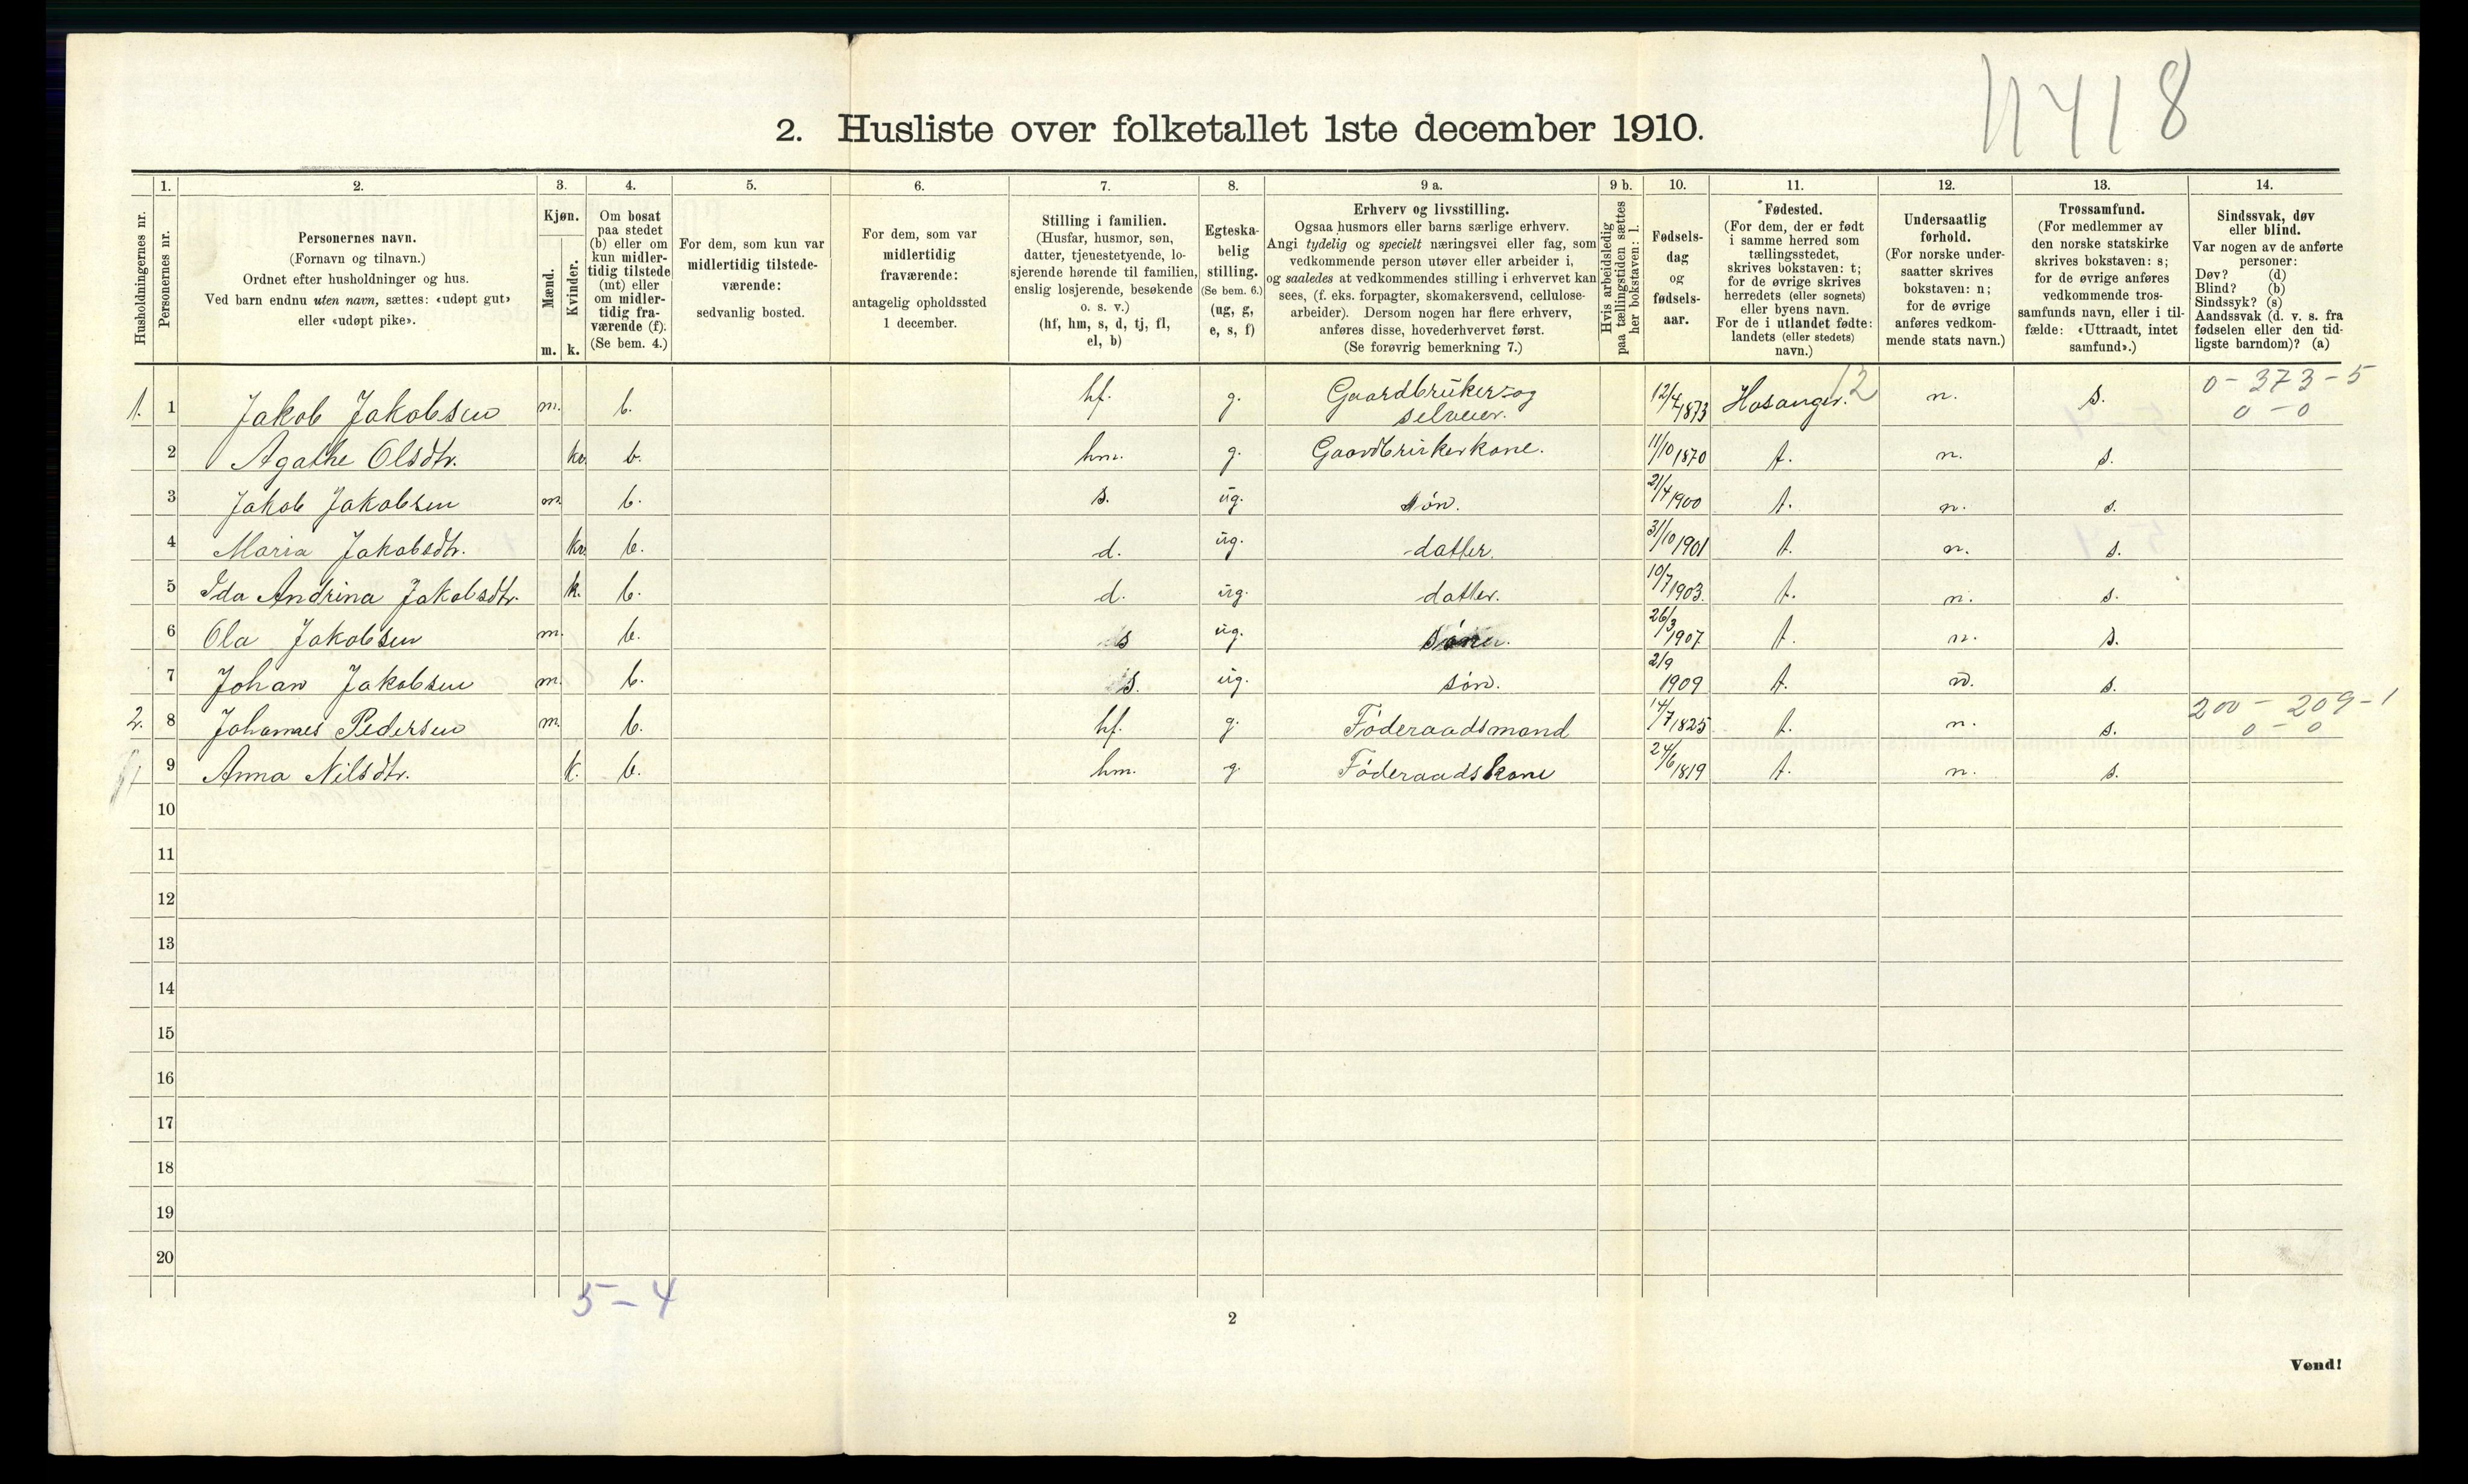 1418
2. Husliste over folketallet 1ste december 1910.
Husholdningernes nr.
1. Personernes nr.
2. Personernes navn. (Fornavn og tilnavn.) Ordnet efter husholdninger og hus. Ved barn endnu uten navn, sættes: «udøpt gut» eller «udøpt pike».
3. Kjøn. Mænd. m. Kvinder. k.
4. Om bosat paa stedet (b) eller om kun midlertidig tilstede (mt) eller om midlertidig fraværende (f). (Se bem. 4.)
5. For dem, som kun var midlertidig tilstedeværende: sedvanlig bosted.
6. For dem, som var midlertidig fraværende: antagelig opholdssted 1 december.
7. Stilling i familien. (Husfar, husmor, søn, datter, tjenestetyende, losjerende hørende til familien, enslig losjerende, besøkende o. s. v.) (hf, hm, s, d, tj, fl, el, b)
8. Egteskabelig stilling. (Se bem. 6.) (ug, g, e, s, f)
9 a. Erhverv og livsstilling. Ogsaa husmors eller barns særlige erhverv. Angi tydelig og specielt næringsvei eller fag, som vedkommende person utøver eller arbeider i, og saaledes at vedkommendes stilling i erhvervet kan sees, (f. eks. forpagter, skomakersvend, cellulosearbeider). Dersom nogen har flere erhverv, anføres disse, hovederhvervet først. (Se forøvrig bemerkning 7.)
9 b. Hvis arbeidsledig paa tællingstiden sættes her bokstaven: l.
10. Fødselsdag og fødselsaar.
11. Fødested. (For dem, der er født i samme herred som tællingsstedet, skrives bokstaven: t; for de øvrige skrives herredets (eller sognets) eller byens navn. For de i utlandet fødte: landets (eller stedets) navn.)
12. Undersaatlig forhold. (For norske undersaatter skrives bokstaven: n; for de øvrige anføres vedkommende stats navn.)
13. Trossamfund. (For medlemmer av den norske statskirke skrives bokstaven: s; for de øvrige anføres vedkommende trossamfunds navn, eller i tilfælde: «Uttraadt, intet samfund».)
14. Sindssvak, døv eller blind. Var nogen av de anførte personer: Døv? (d) Blind? (b) Sindssyk? (s) Aandssvak (d. v. s. fra fødselen eller den tidligste barndom)? (a)
1. 1 Jakob Jakobsen m. b. hf. g. Gaardbruker og selveier. 12/4 1873 Hosanger. 12 n. s. 0 - 373 - 5 0 - 0
2 Agathe Olsdtr. kv. b. hm. g. Gaardbrukerkone. 11/10 1870 t. n. s.
3 Jakob Jakobsen m. b. s. ug. søn. 21/4 1900 t. n. s.
4 Maria Jakobsdtr. kv. b. d. ug. datter. 31/10 1901 t. n. s.
5 Ida Andrina Jakobsdtr. k. b. d. ug. datter. 10/7 1903. t. n. s.
6 Ola Jakobsen m. b. s ug. 26/3 1907 t. n. s.
7 Johan Jakobsen m. b. s. ug. søn. 2/9 1909 t. n. s.
2. 8 Johannes Pedersen m. b. hf. g. Föderaadsmand 14/7 1825 t. n. s. 200 - 209 - 1 0 - 0
9 Anna Nilsdtr. k. b. hm. g. Föderaadskone 24/6 1819 t. n. s.
10
11
12
13
14
15
16
17
18
19
20
5 - 4
2
Vend!